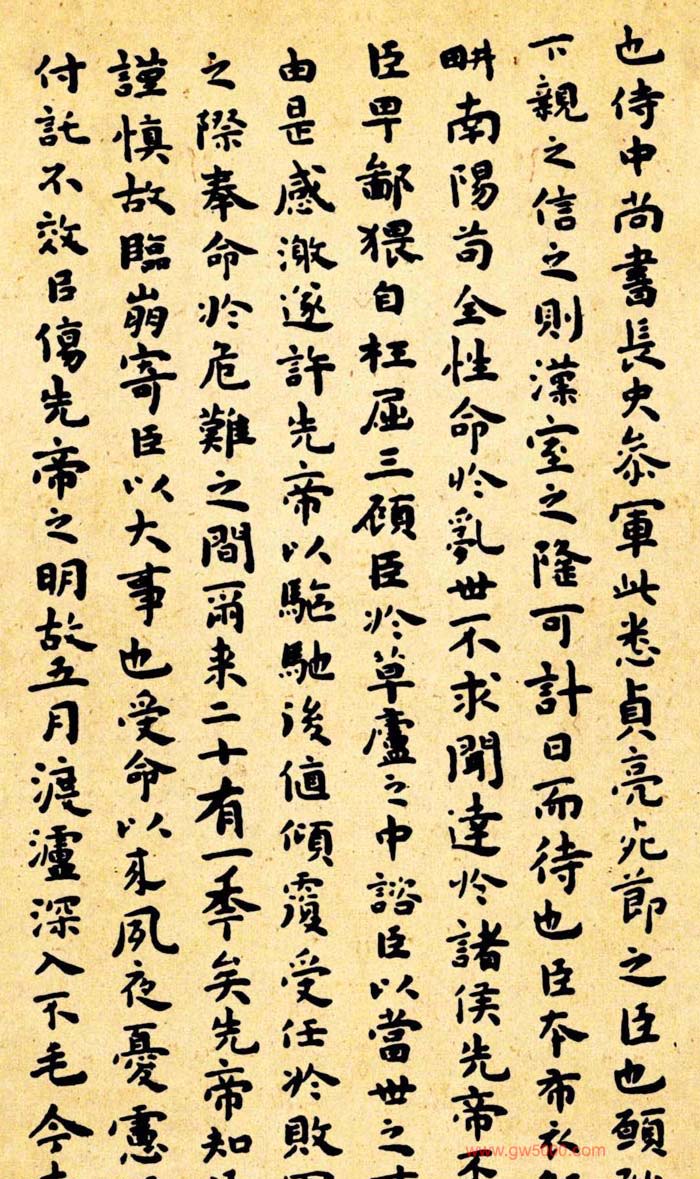 也侍中尚書長史叅軍此悉貞亮死節之臣也願
下親之信之則漢室之隆可計日而待也臣本布衣
畊南陽苟全性命於亂世不求聞達於諸侯先帝不
臣卑鄙猥自枉屈三顧臣於草廬之中諮臣以當世之
由是感激遂許先帝以驅馳後值傾覆受任於敗軍
之際奉命於危難之間爾来二十有一年矣先帝知
謹慎故臨崩寄臣以大事也受命以来夙夜憂慮
付託不效以傷先帝之明故五月渡瀘深入不毛今
www.gw5000.com